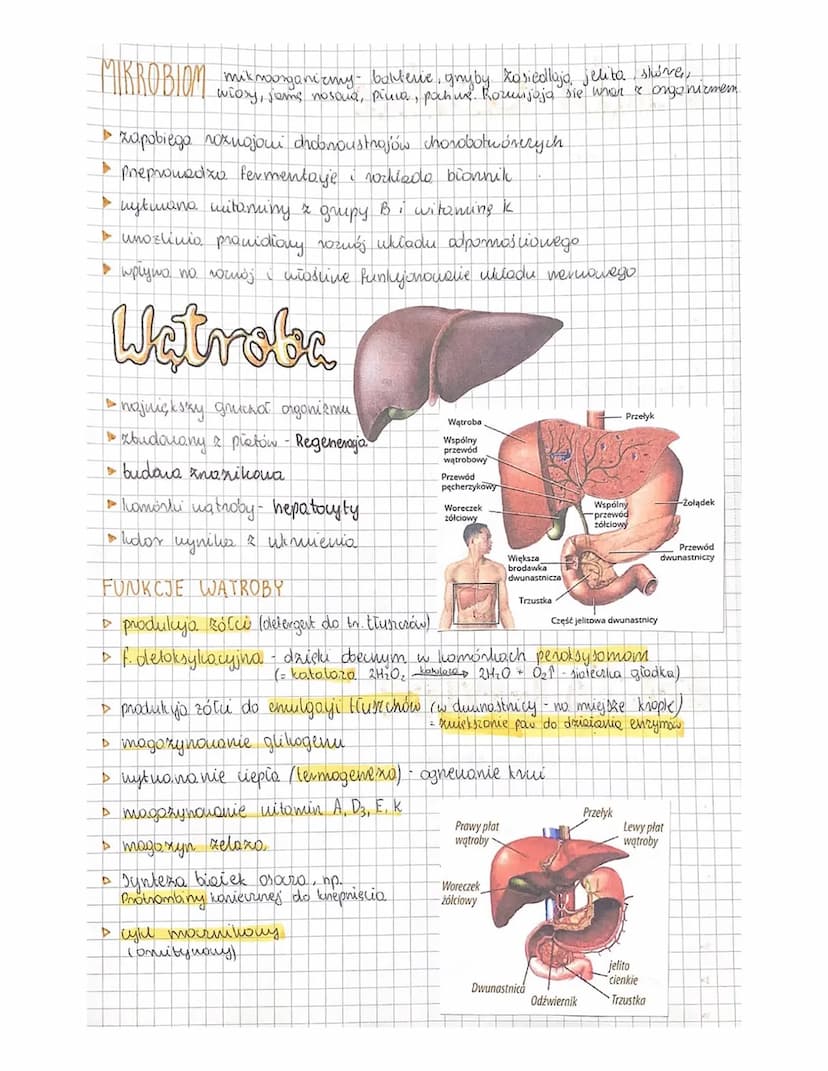 MIKROBIOM mikroorganizmy - bakterie, grzyby zasiedlają jelita, skórę,
włosy, jamę nosową, płuca, pochwę. Rozwijają się wraz z organizmem
▸ zapobiega rozwojowi drobnoustrojów chorobotwórczych
▸ przeprowadza fermentację i rozkłada błonnik
▸ wytwarza witaminy z grupy B i witaminę K
▸ umożliwia prawidłowy rozwój układu odpornościowego
▸ wpływa na rozwój i właściwe funkcjonowanie układu nerwowego
Wątroba
▸ największy gruczoł organizmu
▸ zbudowany z płatów - Regeneracja
▸ budowa zrazikowa
▸ komórki wątroby - hepatocyty
▸ kolor wynika z ukrwienia
Przełyk
Wątroba
Wspólny
przewód
wątrobowy
Przewód
pęcherzykowy
Woreczek
żółciowy
Wspólny
przewód
żółciowy
Żołądek
Przewód
dwunastniczy
Większa
brodawka
dwunastnicza
Trzustka
Część jelitowa dwunastnicy
FUNKCJE WĄTROBY
▹ produkcja żółci (detergent do tr. tłuszczów)
▹ f. detoksykacyjna - dzięki obecnym w komórkach peroksysomom
(= katalaza 2H₂O₂ katalaza→ 2H₂O + O₂↑ - siateczka gładka)
▹ produkcja żółci do emulgacji tłuszczów (w dwunastnicy - na mniejsze krople)
= zwiększanie pow do działania enzymów
▹ magazynowanie glikogenu
▹ wytwarzanie ciepła (termogeneza) - ogrzewanie krwi
▹ magazynowanie witamin A, D₃, E, K
▹ magazyn żelaza
▹ Synteza białek osocza, np.
Protrombiny koniecznej do krzepnięcia
▹ cykl mocznikowy
(ornitynowy)
Przełyk
Prawy płat
wątroby
Lewy płat
wątroby
Woreczek
żółciowy
jelito
cienkie
Dwunastnica
Trzustka
Odźwiernik